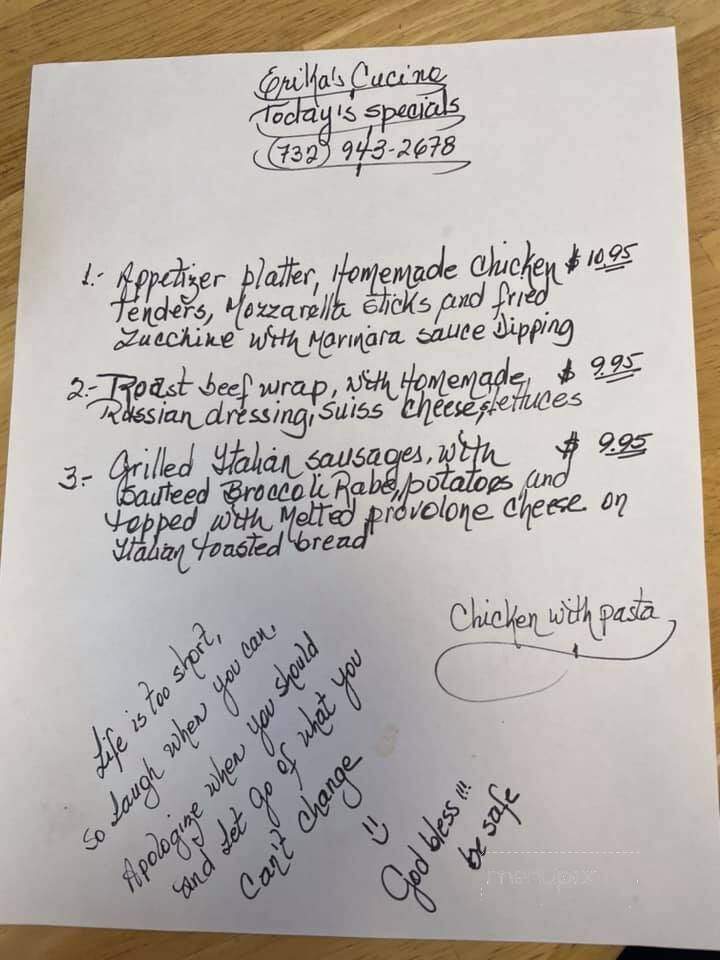 Erika's Cucina
Today's specials
(732) 943-2678
1.- Appetizer platter, Homemade Chicken $ 10.95
tenders, Mozzarella sticks and fried
Zucchine with Marinara sauce Dipping
2.- Roast beef wrap, with Homemade $ 9.95
Russian dressing, Suiss cheese, lettuces
3- Grilled Italian sausages, with $ 9.95
Sauteed Broccoli Rabe, potatoes and
topped with Melted provolone cheese on
Italian toasted bread
Chicken with pasta
Life is too short,
so Laugh when you can,
Apologize when you should
and Let go of what you
Can't change
God bless!!!
be safe
menupix